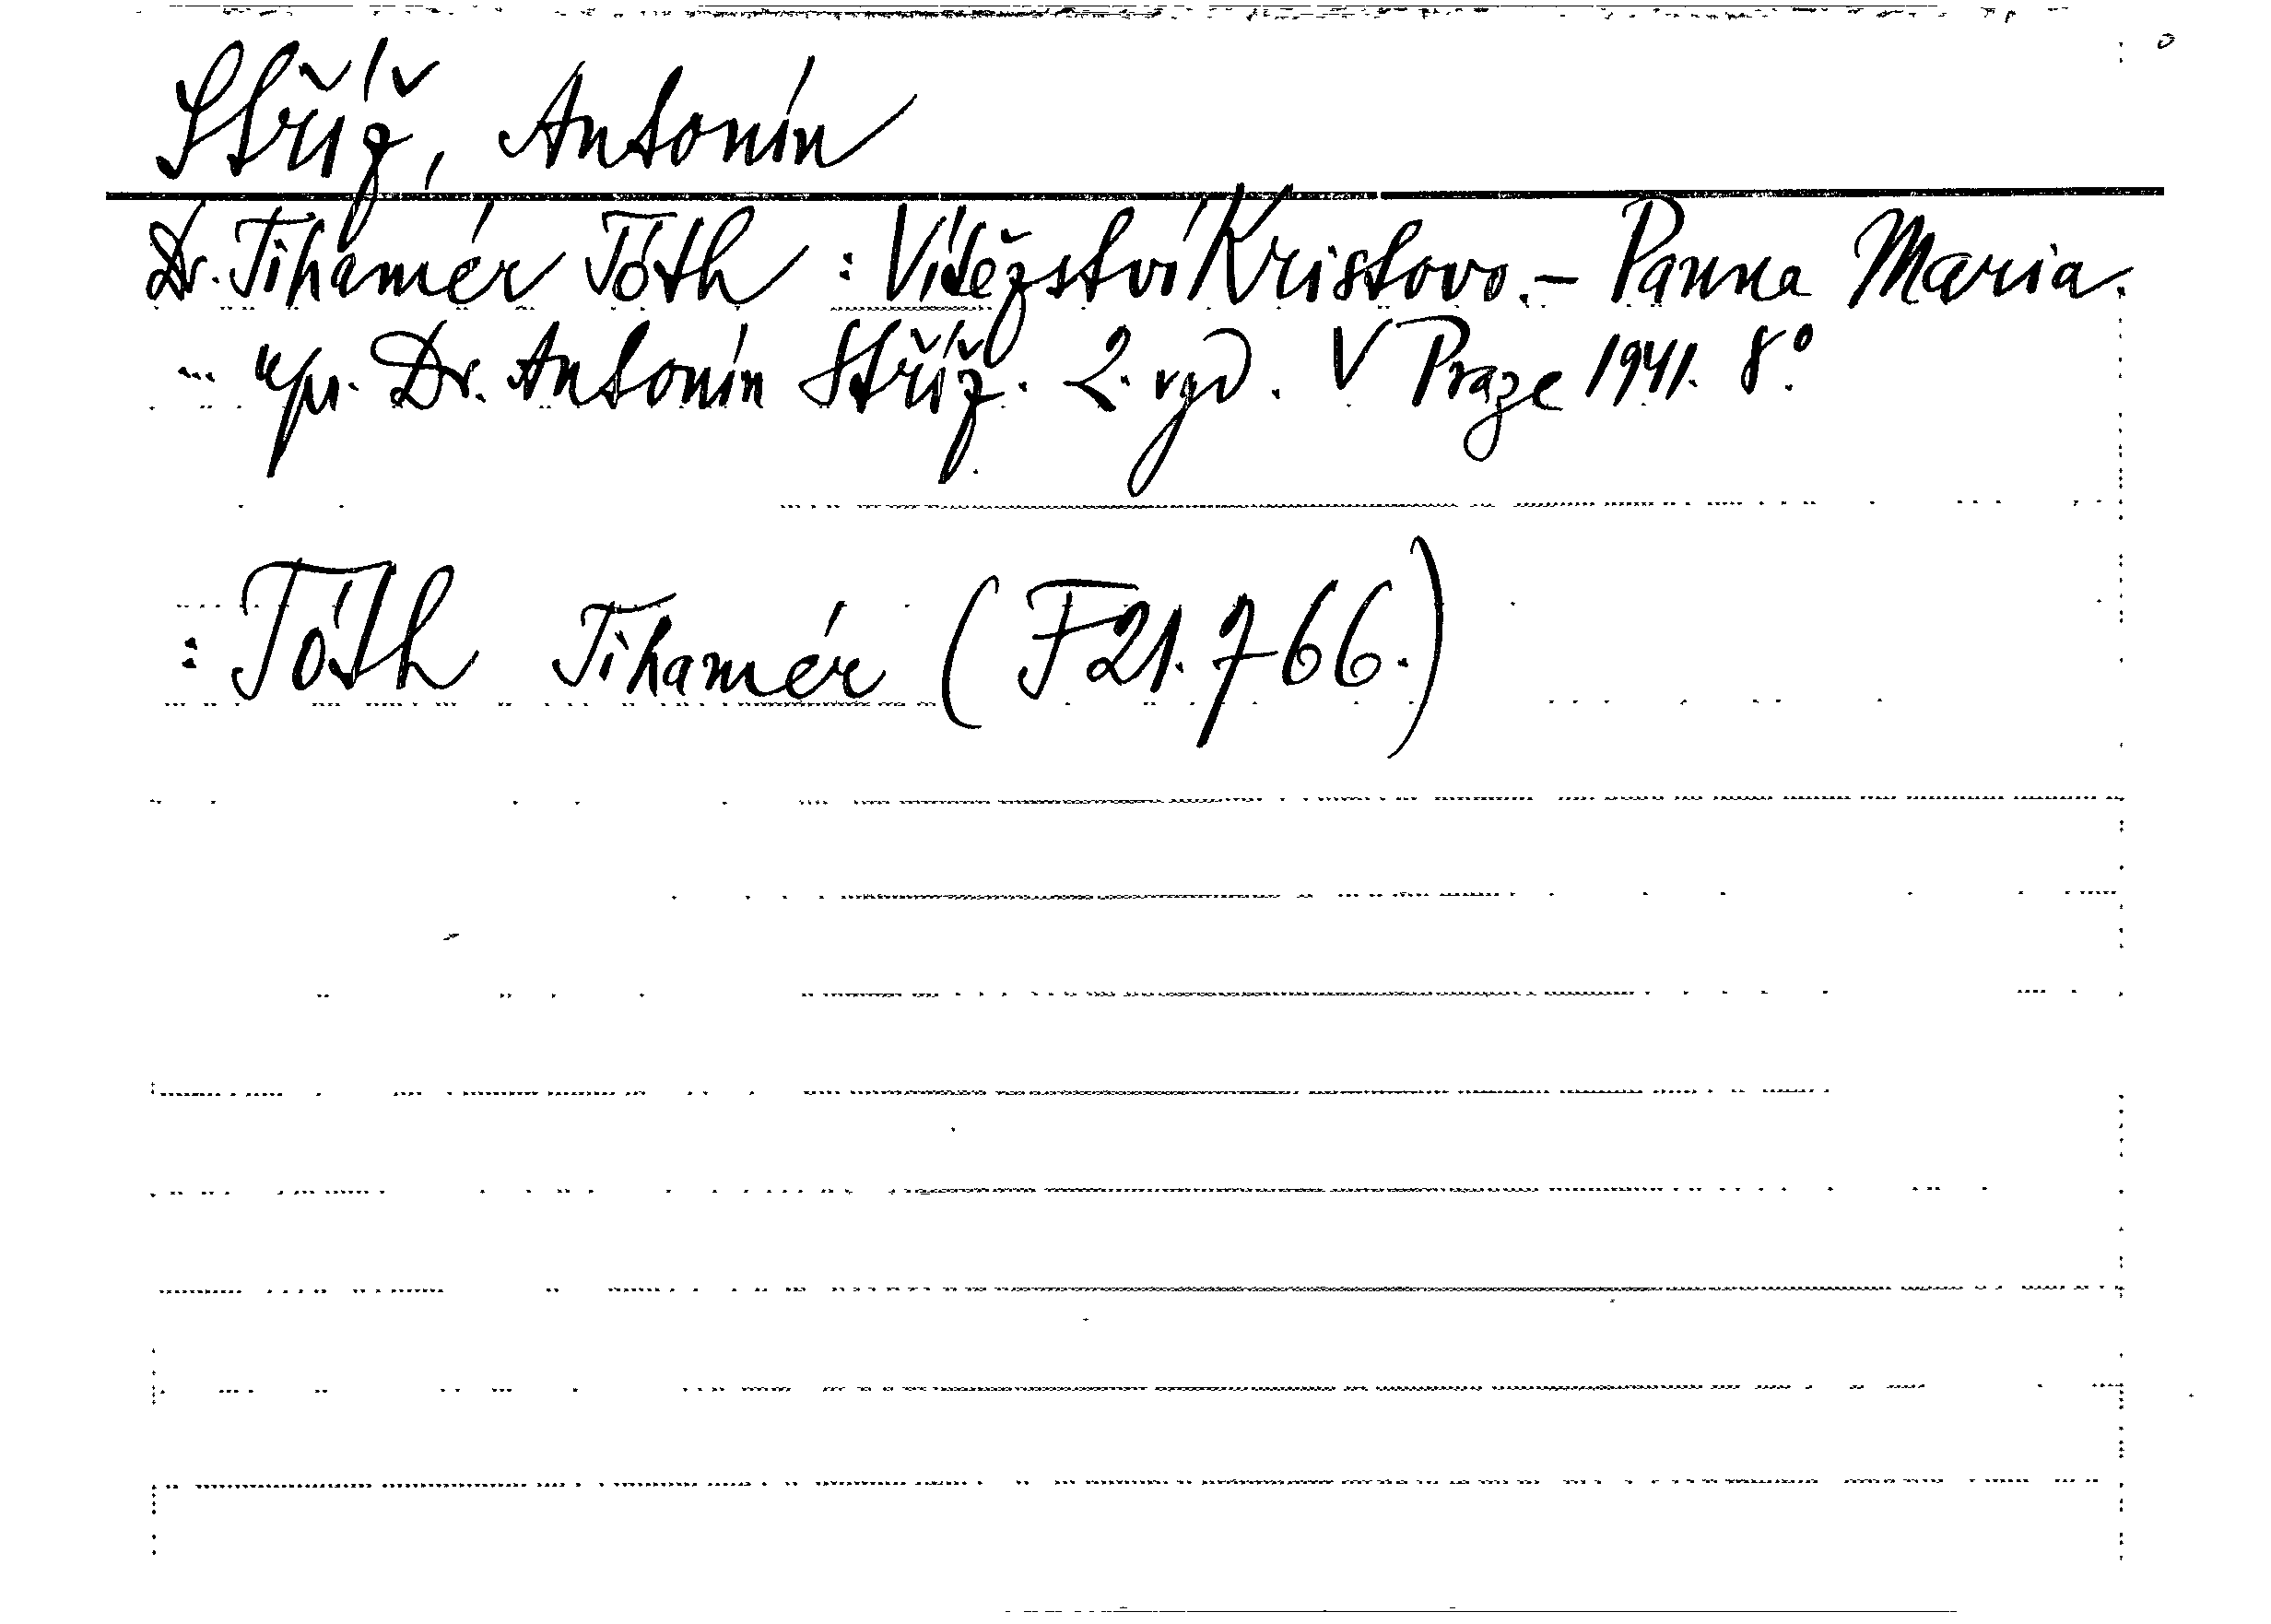 Stříž, Antonín
Dr. Tihamér Tóth : Vítězství Kristovo. – Panna Maria.
... upr. Dr. Antonín Stříž. 2. vyd. V Praze 1941. 8°.
: Tóth Tihamér (F21.766.)